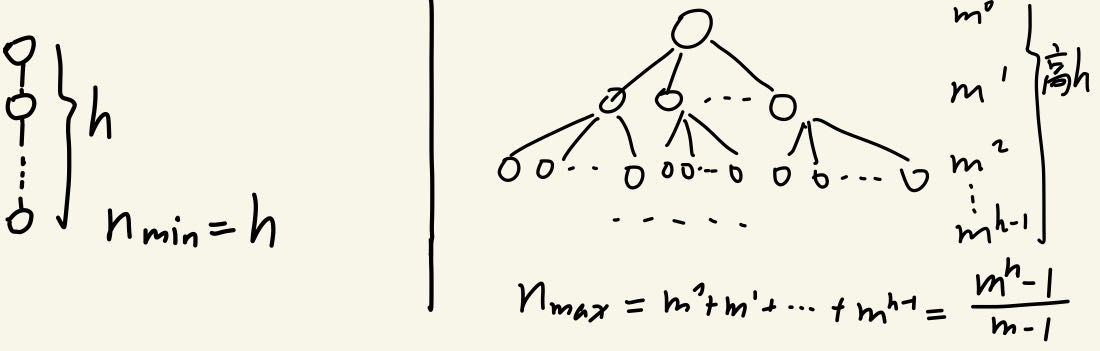 h
n_min = h
m⁰
m¹
m²
⋮
m^(h-1)
高h
n_max = m⁰+m¹+⋯+m^(h-1) = (m^h-1)/(m-1)